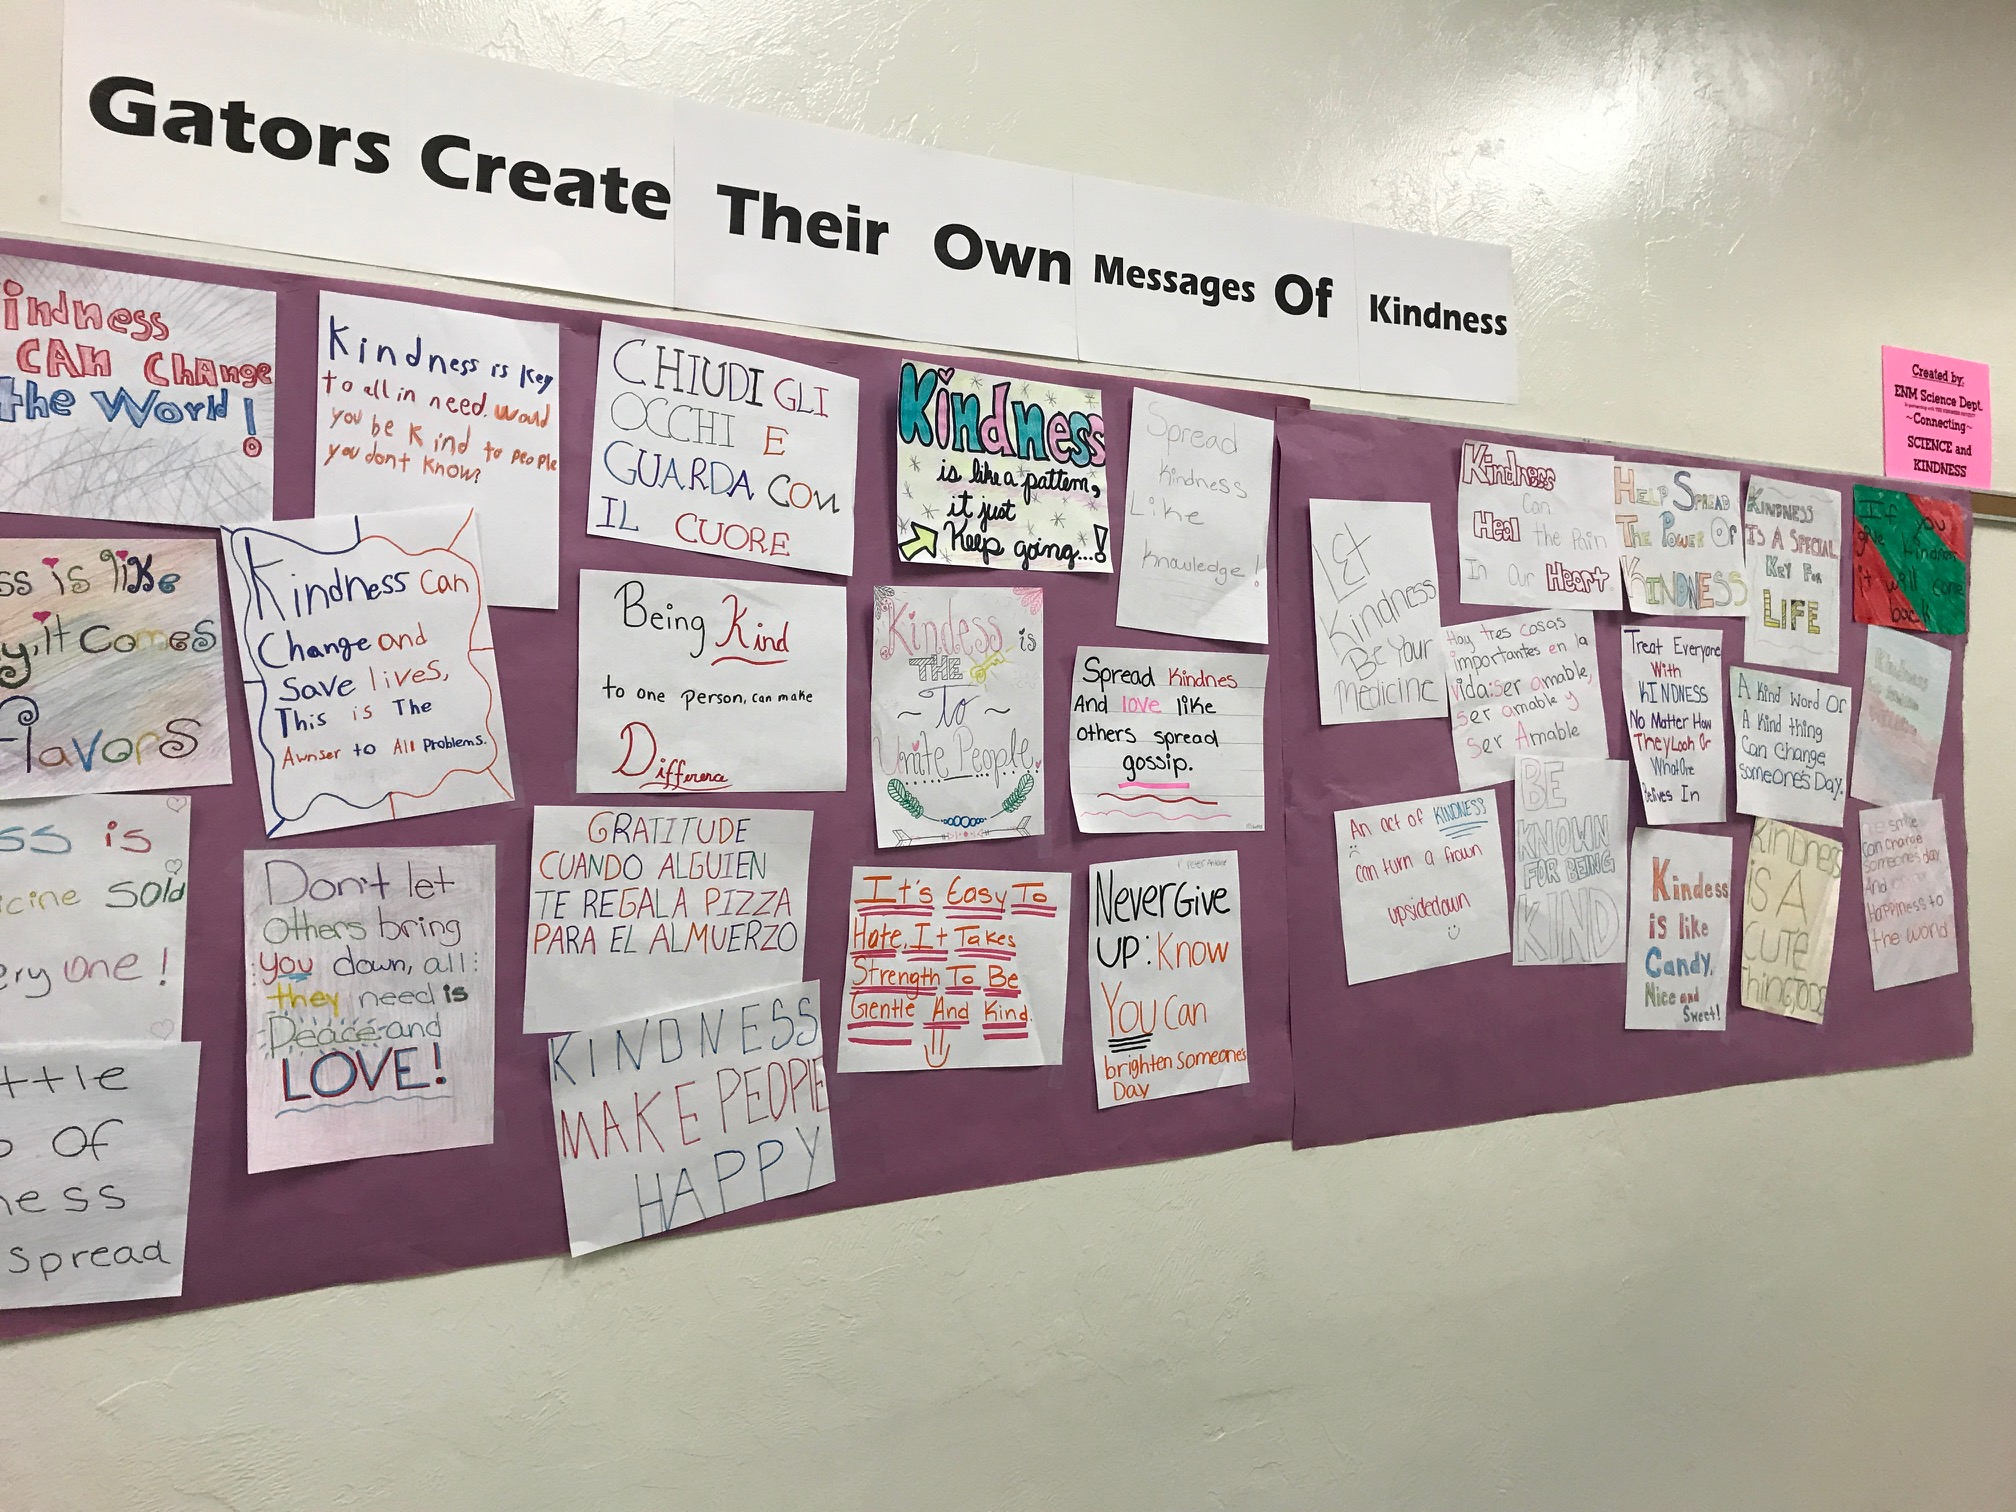 Gators Create Their Own Messages Of Kindness
Created by:
ENM Science Dept.
~Connecting~
SCIENCE and
KINDNESS
indness
CAN Change
the World!
Kindness is key
to all in need. would
you be kind to people
you dont know?
CHIUDI GLI
OCCHI E
GUARDA CON
IL CUORE
Kindness
is like a pattern,
it just
Keep going...!
Spread
Kindness
Like
Knowledge!
ss is like
y, it comes
flavors
Kindness can
Change and
Save lives,
This is The
Awnser to All Problems.
Being Kind
to one person, can make
Difference
Kindess is
THE
~To~
Unite People.
Spread Kindnes
And love like
others spread
gossip.
ss is
icine sold
ery one!
Don't let
Others bring
you down, all
they need is
Peace and
LOVE!
GRATITUDE
CUANDO ALGUIEN
TE REGALA PIZZA
PARA EL ALMUERZO
It's Easy To
Hate, It Takes
Strength To Be
Gentle And Kind.
Never Give
UP: Know
You Can
brighten someone's
Day
ttle
of
ness
spread
KINDNESS
MAKE PEOPLE
HAPPY
Let
Kindness
Be Your
Medicine
Kindness
Can
Heal the Pain
In Our Heart.
Help Spread
The Power Of
Kindness
Kindness
Is A Special
Key For
LIFE
If you
give kindness
it will come
back
Hay tres cosas
importantes en la
vida: ser amable,
ser amable y
ser Amable
Treat Everyone
With
KINDNESS
No Matter How
They Look Or
What
Belives In
A Kind Word Or
A Kind thing
Can Change
someone's Day.
An act of KINDNESS
can turn a frown
upsidedown
BE
KNOWN
FOR BEING
KIND
Kindess
is like
Candy,
Nice and
Sweet!
Kindness
IS A
CUTE
thing to do
smile
can change
someones day
And
Happiness to
the world